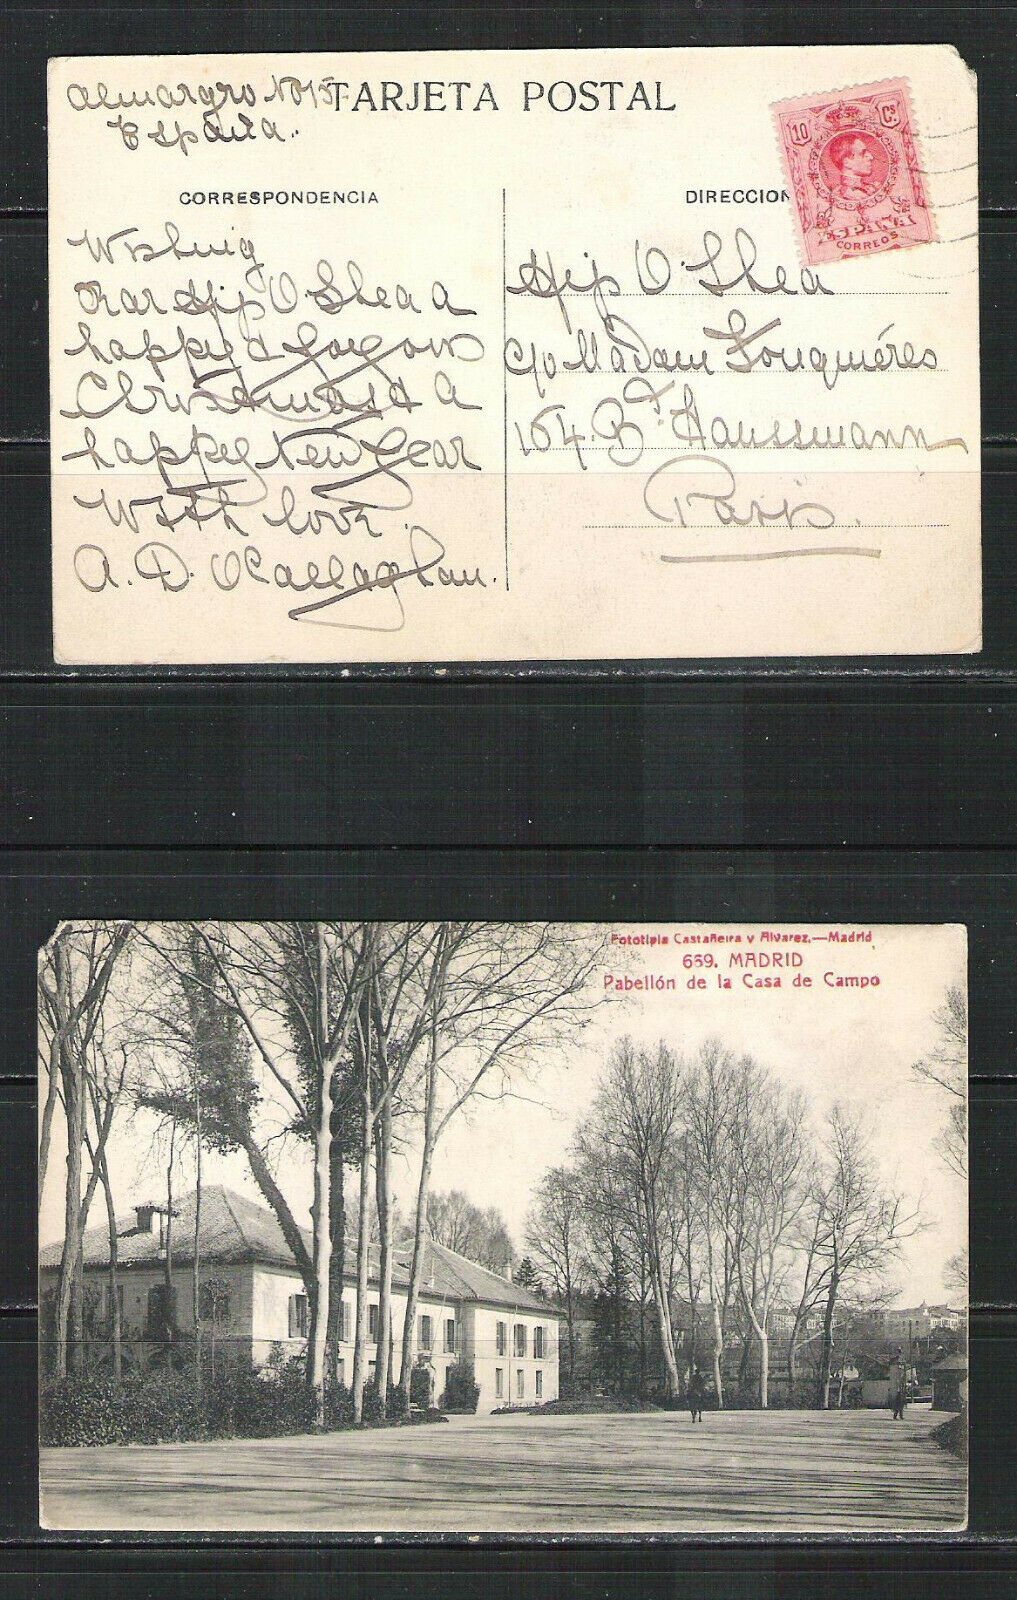 Almargro No 15
España.
TARJETA POSTAL
10 Cs
ESPAÑA
CORREOS
CORRESPONDENCIA
DIRECCION
Wishing
Dear Hip O'Shea a
happy & joyous
Christmas & a
happy New Year
With love.
A. D. O'Callaghan.
Hip O'Shea
c/o Madam Fouquiéres
154. Bd Haussmann
Paris.
Fototipia Castañeira y Alvarez.—Madrid
669. MADRID
Pabellón de la Casa de Campo